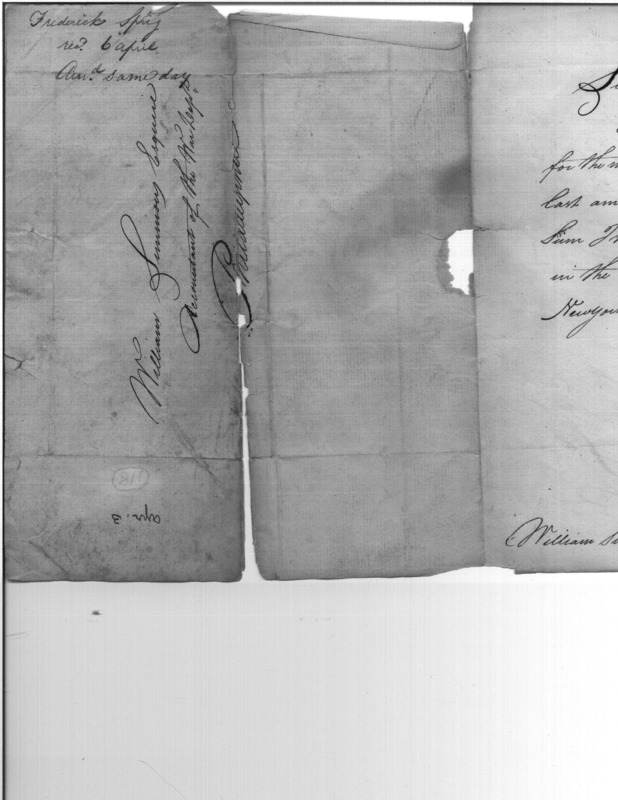 Frederick Sprig
recd 6 april
Ansd same day
William Simmons Esquire
Accountant of the War Dept
Philadelphia
apr. 3
Si
for the m
last am
Sum
in the
Newyor
William Si